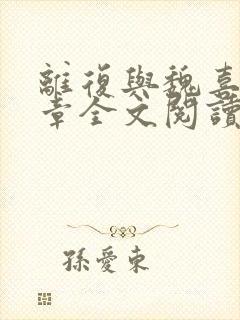 離復與魏喜
章全文閱讀
孫愛東